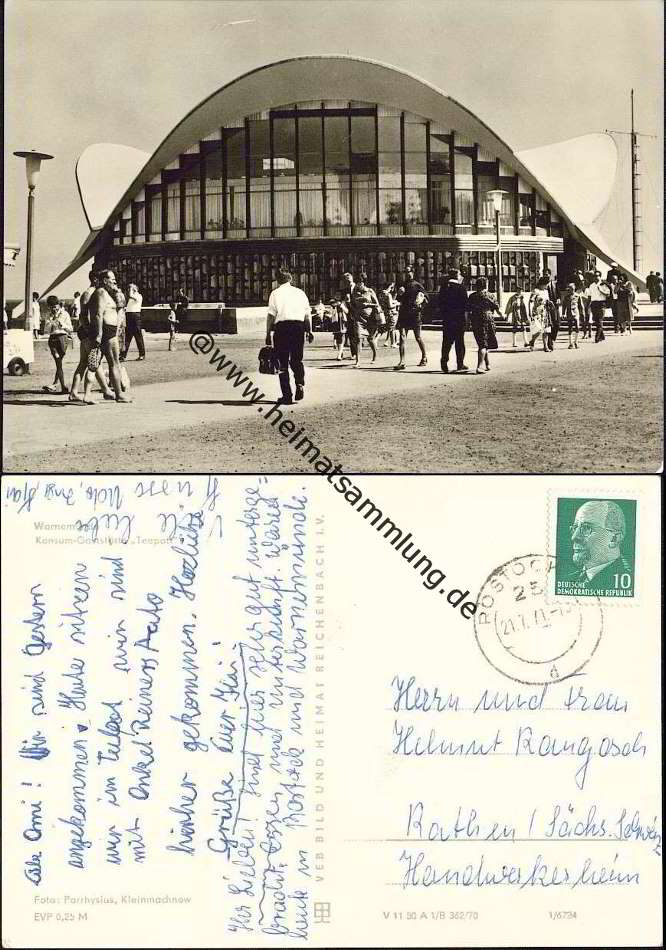 @www.heimatsammlung.de
Viele liebe
Grüsse Udo, Ina, Kai
Warnemünde
Konsum-Gaststätte „Teepott"
Wir sind gestern
angekommen. Heute sitzen
wir im Teepott wir sind
mit Onkel Reiners Auto
hierher gekommen. Herzliche
Grüße Euer Kai
Ihr Lieben! Sind hier sehr gut unterge=
bracht. Essen und Unterkunft waren
heute in Rostock und Warnemünde.
Foto: Parrhysius, Kleinmachnow
EVP 0,25 M
VEB BILD UND HEIMAT REICHENBACH i.V.
V 11 50 A 1/B 362/70 1/6734
ROSTOCK
25
21.7.71
d
DEUTSCHE
DEMOKRATISCHE REPUBLIK
10
Herrn und Frau
Helmut Rangosch
Rathen / Sächs. Schweiz
Handwerkerheim